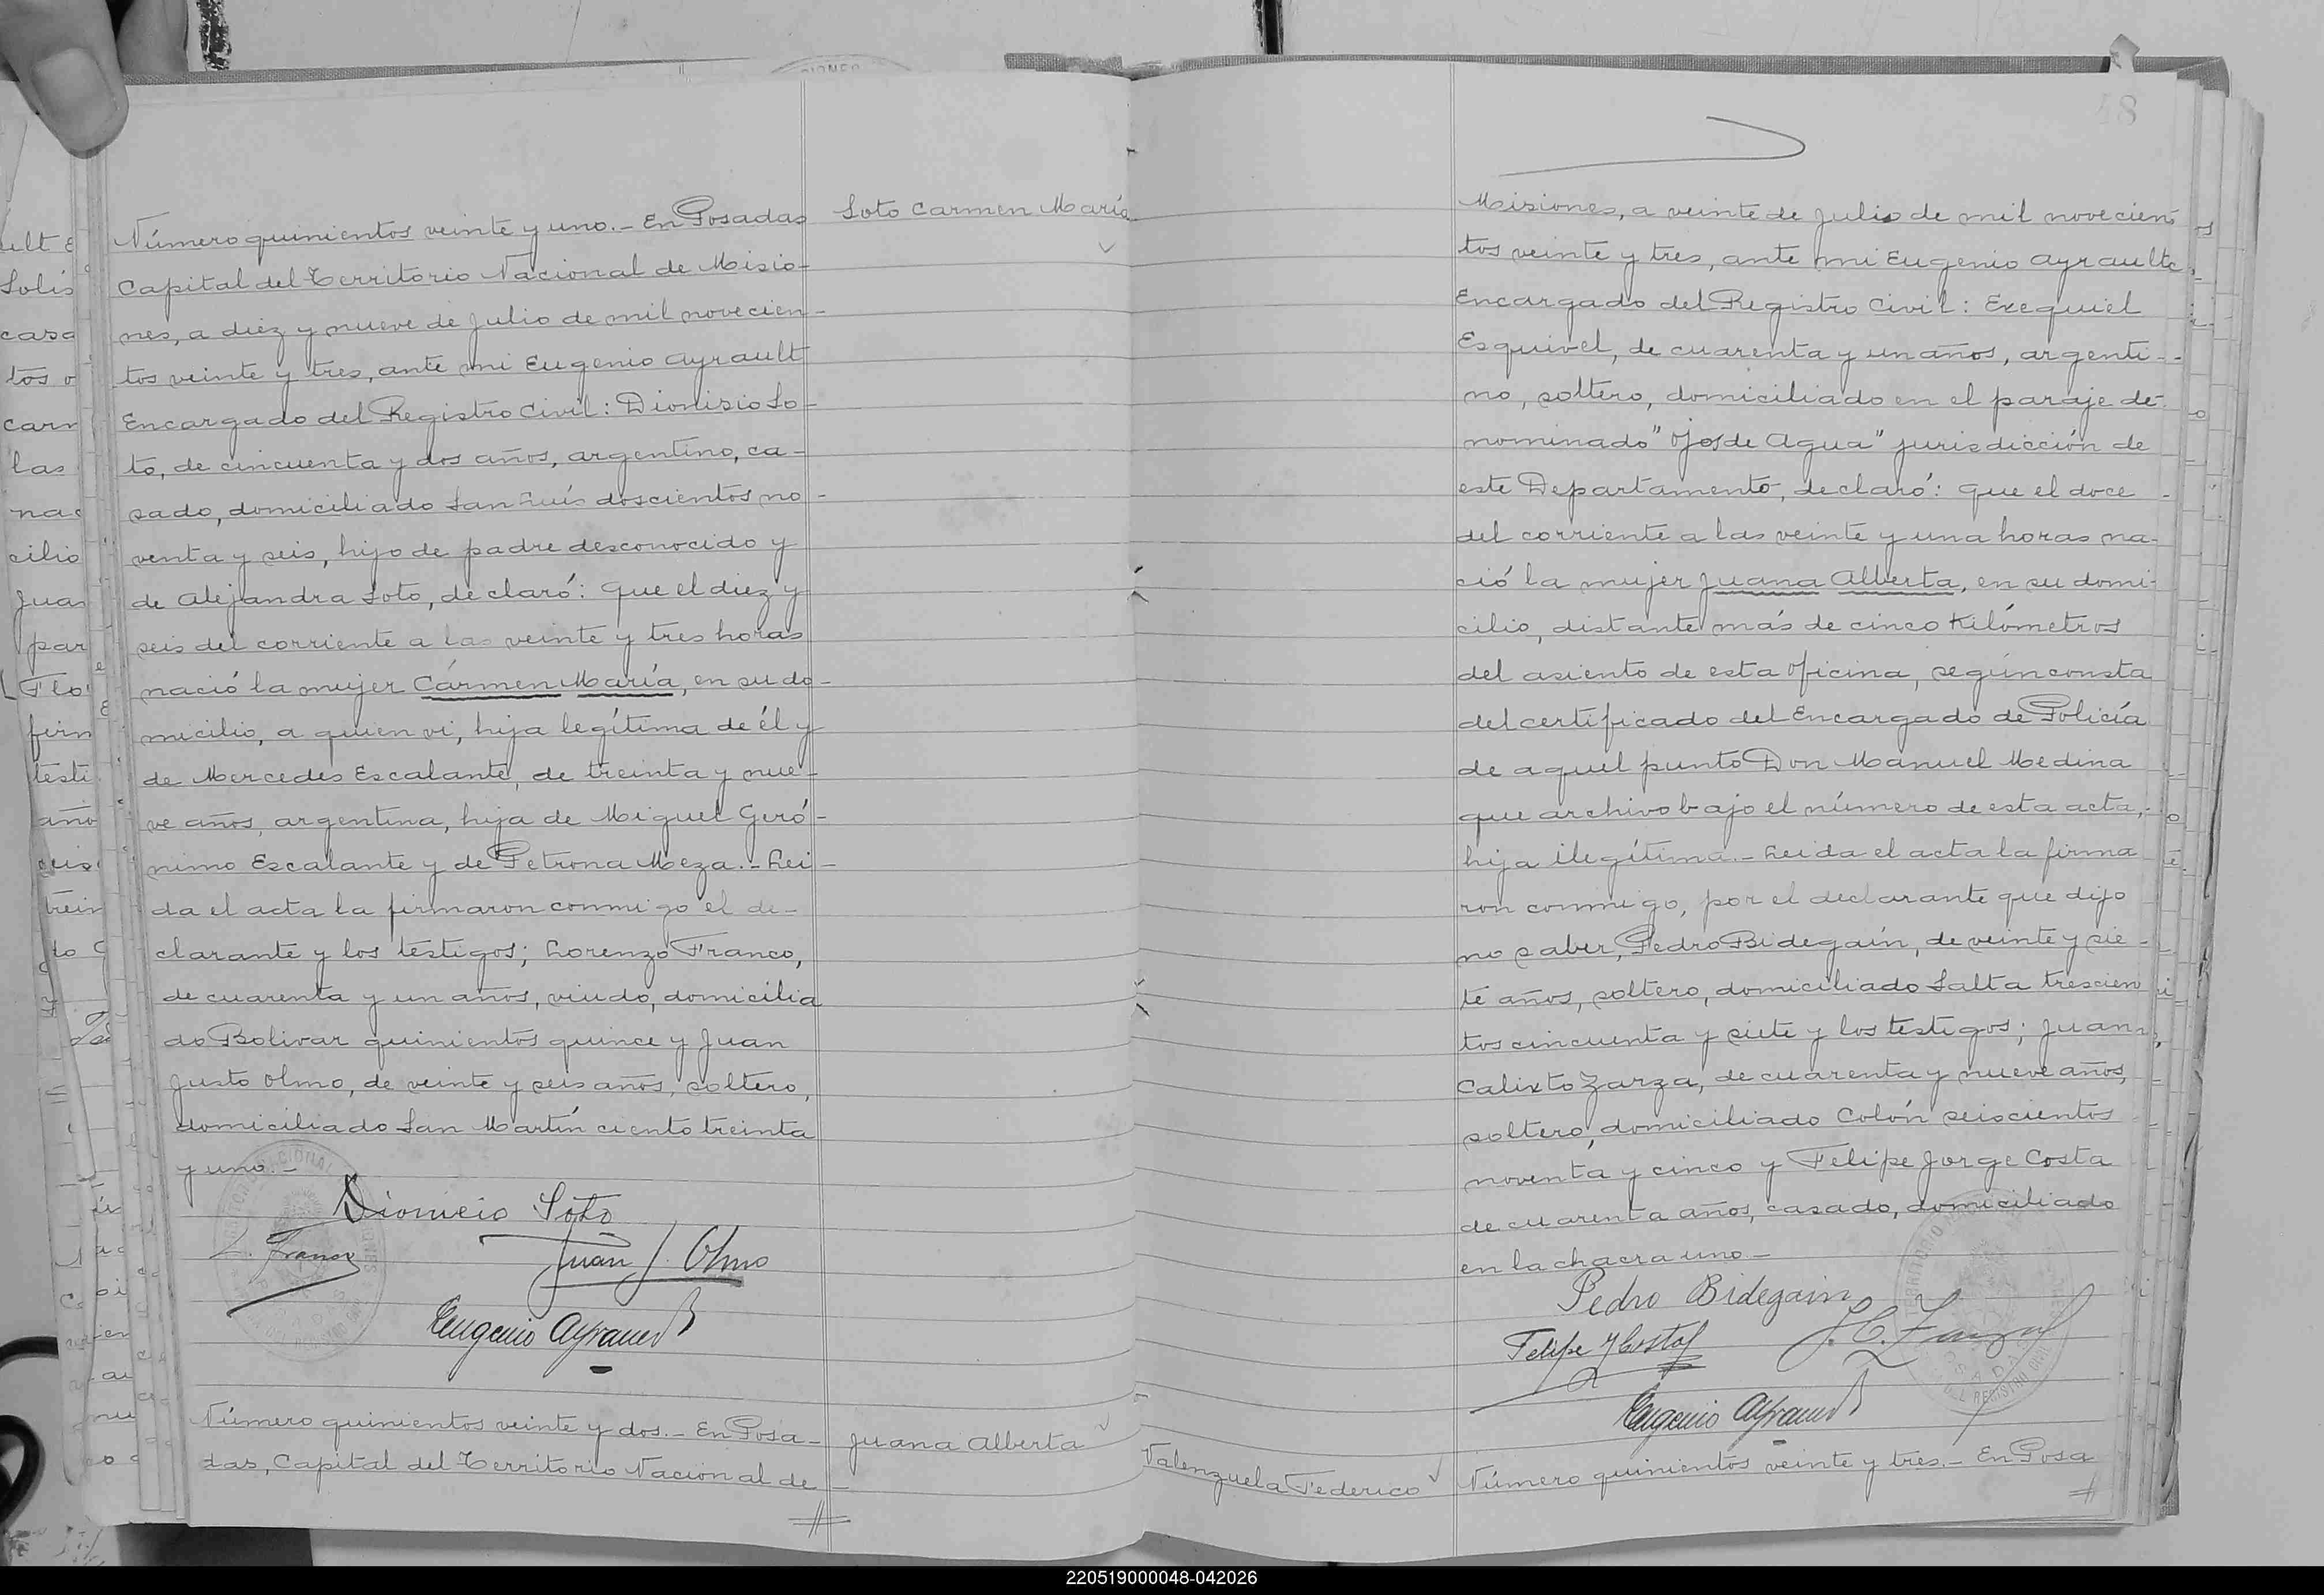 Número quinientos veinte y uno.- En Posadas
Capital del Territorio Nacional de Misio-
nes, a diez y nueve de Julio de mil novecien-
tos veinte y tres, ante mi Eugenio Ayrault
Encargado del Registro Civil: Dionisio So-
to, de cincuenta y dos años, argentino, ca-
sado, domiciliado San Luis doscientos no-
venta y seis, hijo de padre desconocido y
de Alejandra Soto, declaró: Que el diez y
seis del corriente a las veinte y tres horas
nació la mujer Cármen María, en su do-
micilio, a quien vi, hija legítima de él y
de Mercedes Escalante, de treinta y nue-
ve años, argentina, hija de Miguel Geró-
nimo Escalante y de Petrona Meza.- Lei-
da el acta la firmaron conmigo el de-
clarante y los testigos; Lorenzo Franco,
de cuarenta y un años, viudo, domicilia
do Bolivar quinientos quince y Juan
Justo Olmo, de veinte y seis años, soltero,
domiciliado San Martín ciento treinta
y uno.-
Dionicio Soto
L. Franco
Juan J. Olmo
Eugenio Ayrault
Número quinientos veinte y dos.- En Posa-
das, Capital del Territorio Nacional de
Soto Carmen María
Juana Alberta
Valenzuela Federico
48
Misiones, a veinte de Julio de mil novecien
tos veinte y tres, ante mi Eugenio Ayrault
Encargado del Registro Civil: Exequiel
Esquivel, de cuarenta y un años, argenti-
no, soltero, domiciliado en el paraje de-
nominado "Ojos de Agua" jurisdicción de
este Departamento, declaró: Que el doce
del corriente a las veinte y una horas na-
ció la mujer Juana Alberta, en su domi-
cilio, distante más de cinco Kilómetros
del asiento de esta Oficina, según consta
del certificado del Encargado de Policía
de aquel punto Don Manuel Medina
que archivo bajo el número de esta acta,
hija ilegítima.- Leida el acta la firma
ron conmigo, por el declarante que dijo
no saber, Pedro Bidegaín, de veinte y sie-
te años, soltero, domiciliado Salta trescien
tos cincuenta y siete y los testigos; Juan
Calixto Zarza, de cuarenta y nueve años,
soltero, domiciliado Colón seiscientos
noventa y cinco y Felipe Jorge Costa
de cuarenta años, casado, domiciliado
en la chacra uno.-
Pedro Bidegain
Felipe J Costa
J. C. Zarza
Eugenio Ayrault
Número quinientos veinte y tres.- En Posa
220519000048-042026